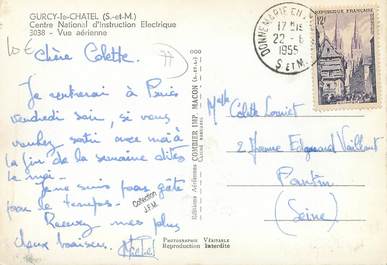 GURCY-le-CHATEL (S.-et-M.)
Centre National d'Instruction Electrique
3038 - Vue aérienne
10€
77
Chère Colette.
Je rentrerai à Paris
vendredi soir, si vous
voulez sortir avec moi à
la fin de la semaine dites
le moi.
Je ne suis pas gâté
par le temps.
Recevez mes plus
doux baisers.
Collection
J.F.M.
Editions Aériennes COMBIER IMP. MACON (S.-et-L.)
PHOTOGRAPHIE VÉRITABLE
Reproduction Interdite
DONNEMARIE EN
17 H
22 - 6
1955
S ET M
12F
RÉPUBLIQUE FRANÇAISE
Melle Colette
2 Avenue Edouard Vaillant
Pantin
(Seine)